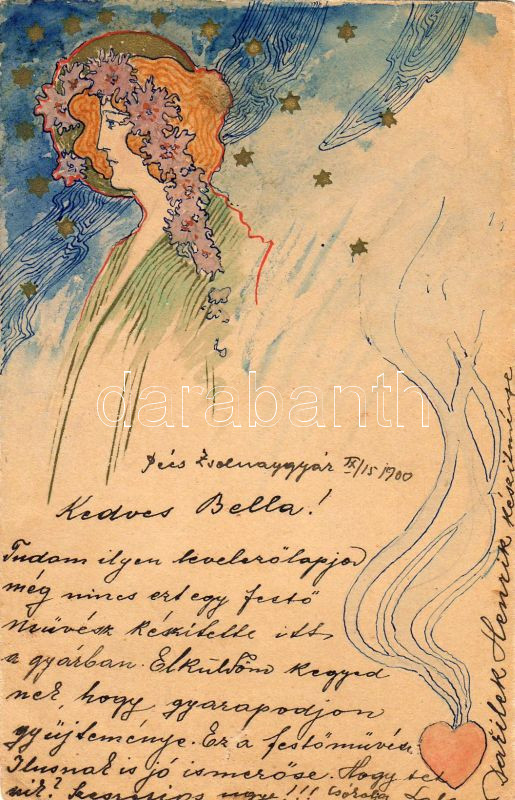 darabanth
Pécs Zsolnaygyár IX/15 1900
Kedves Bella!
Tudom ilyen levelezőlapja
még nincs ezt egy festő
művész készítette itt
a gyárban. Elküldöm kegyed
nek, hogy gyarapodjon
gyüjteménye. Ez a festőművész
Ilusnak is jó ismerőse. Hogy tet
szik? ugye!!!
Darilek Henrik készítménye